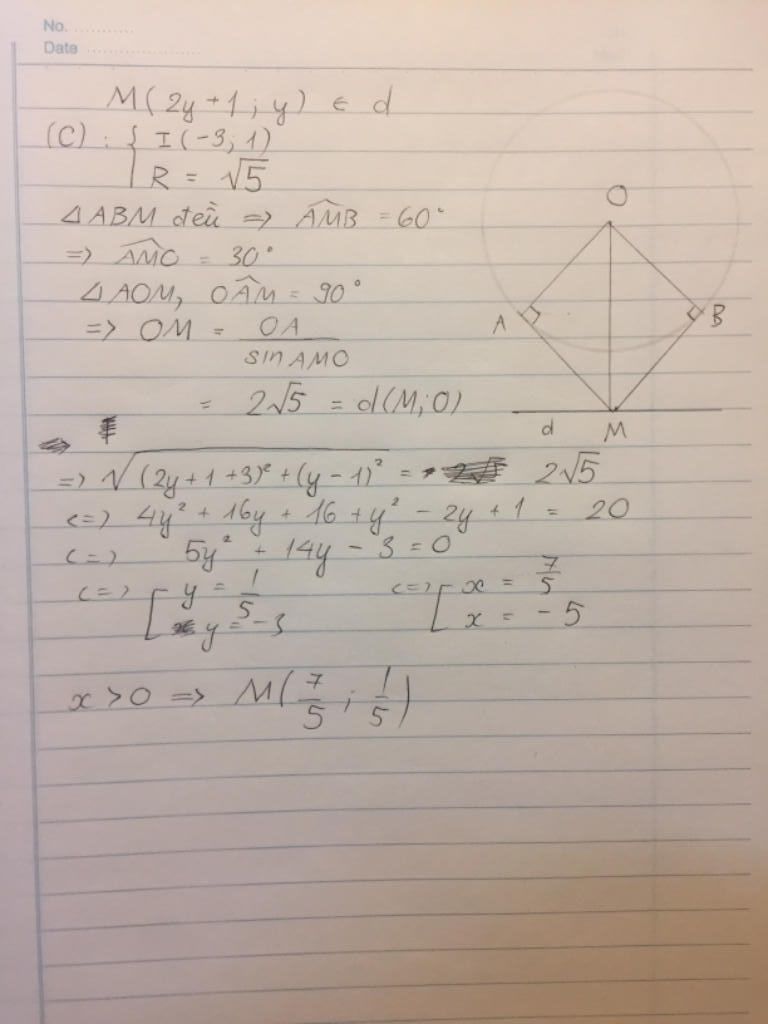 No. ............
Date ........................
M(2y+1; y) ∈ d
(C): { I(-3; 1)
R = √5
△ABM đều => ∠AMB = 60°
=> ∠AMO = 30°
△AOM, ∠OAM = 90°
=> OM = OA / sin AMO
= 2√5 = d(M; O)
=> √((2y+1+3)² + (y-1)²) = 2√5
<=> 4y² + 16y + 16 + y² - 2y + 1 = 20
<=> 5y² + 14y - 3 = 0
<=> [ y = 1/5 <=> [ x = 7/5
y = -3 x = -5
x > 0 => M(7/5; 1/5)
O
A
B
d
M